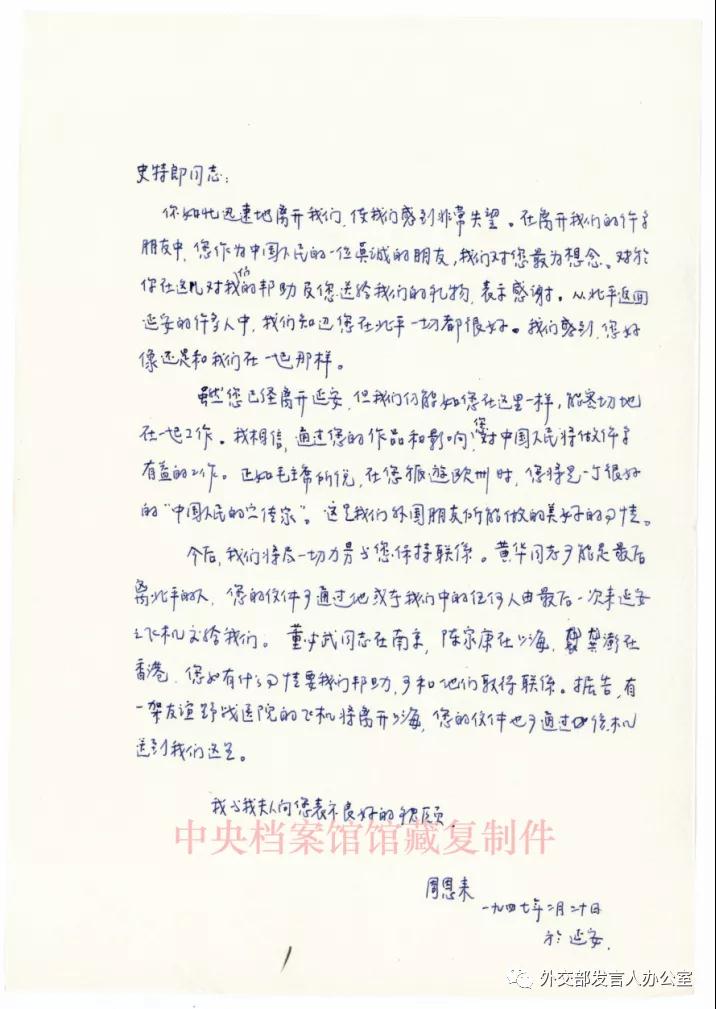 史特郎同志：
你如此迅速地离开我们，使我们感到非常失望。在离开我们的许多
朋友中，您作为中国人民的一位真诚的朋友，我们对您最为想念。对於
你在这儿对我们的帮助及您送给我们的礼物，表示感谢。从北平返回
延安的许多人中，我们知道您在北平一切都很好。我们感到，您好
像还是和我们在一起那样。
虽然您已经离开延安，但我们仍能如您在这里一样，能密切地
在一起工作。我相信，通过您的作品和影响，您对中国人民将做许多
有益的工作。正如毛主席所说，在您旅遊欧州时，您将是一个很好
的“中国人民的宣传家”。这是我们外国朋友所能做的美好的事情。
今后，我们将尽一切力量与您保持联係。黄华同志可能是最后
离北平的人，您的信件可通过他或在我们中的任何人由最后一次来延安
之飞机交给我们。董必武同志在南京，陈家康在上海，龚澎在
香港，您如有什么事情要我们帮助，可和他们取得联係。据告，有
一架友谊野战医院的飞机将离开上海，您的信件也可通过此机
送到我们这里。
我与我夫人向您表示良好的祝愿。
中央档案馆馆藏复制件
周恩来
一九四七年二月二十日
於延安.
外交部发言人办公室